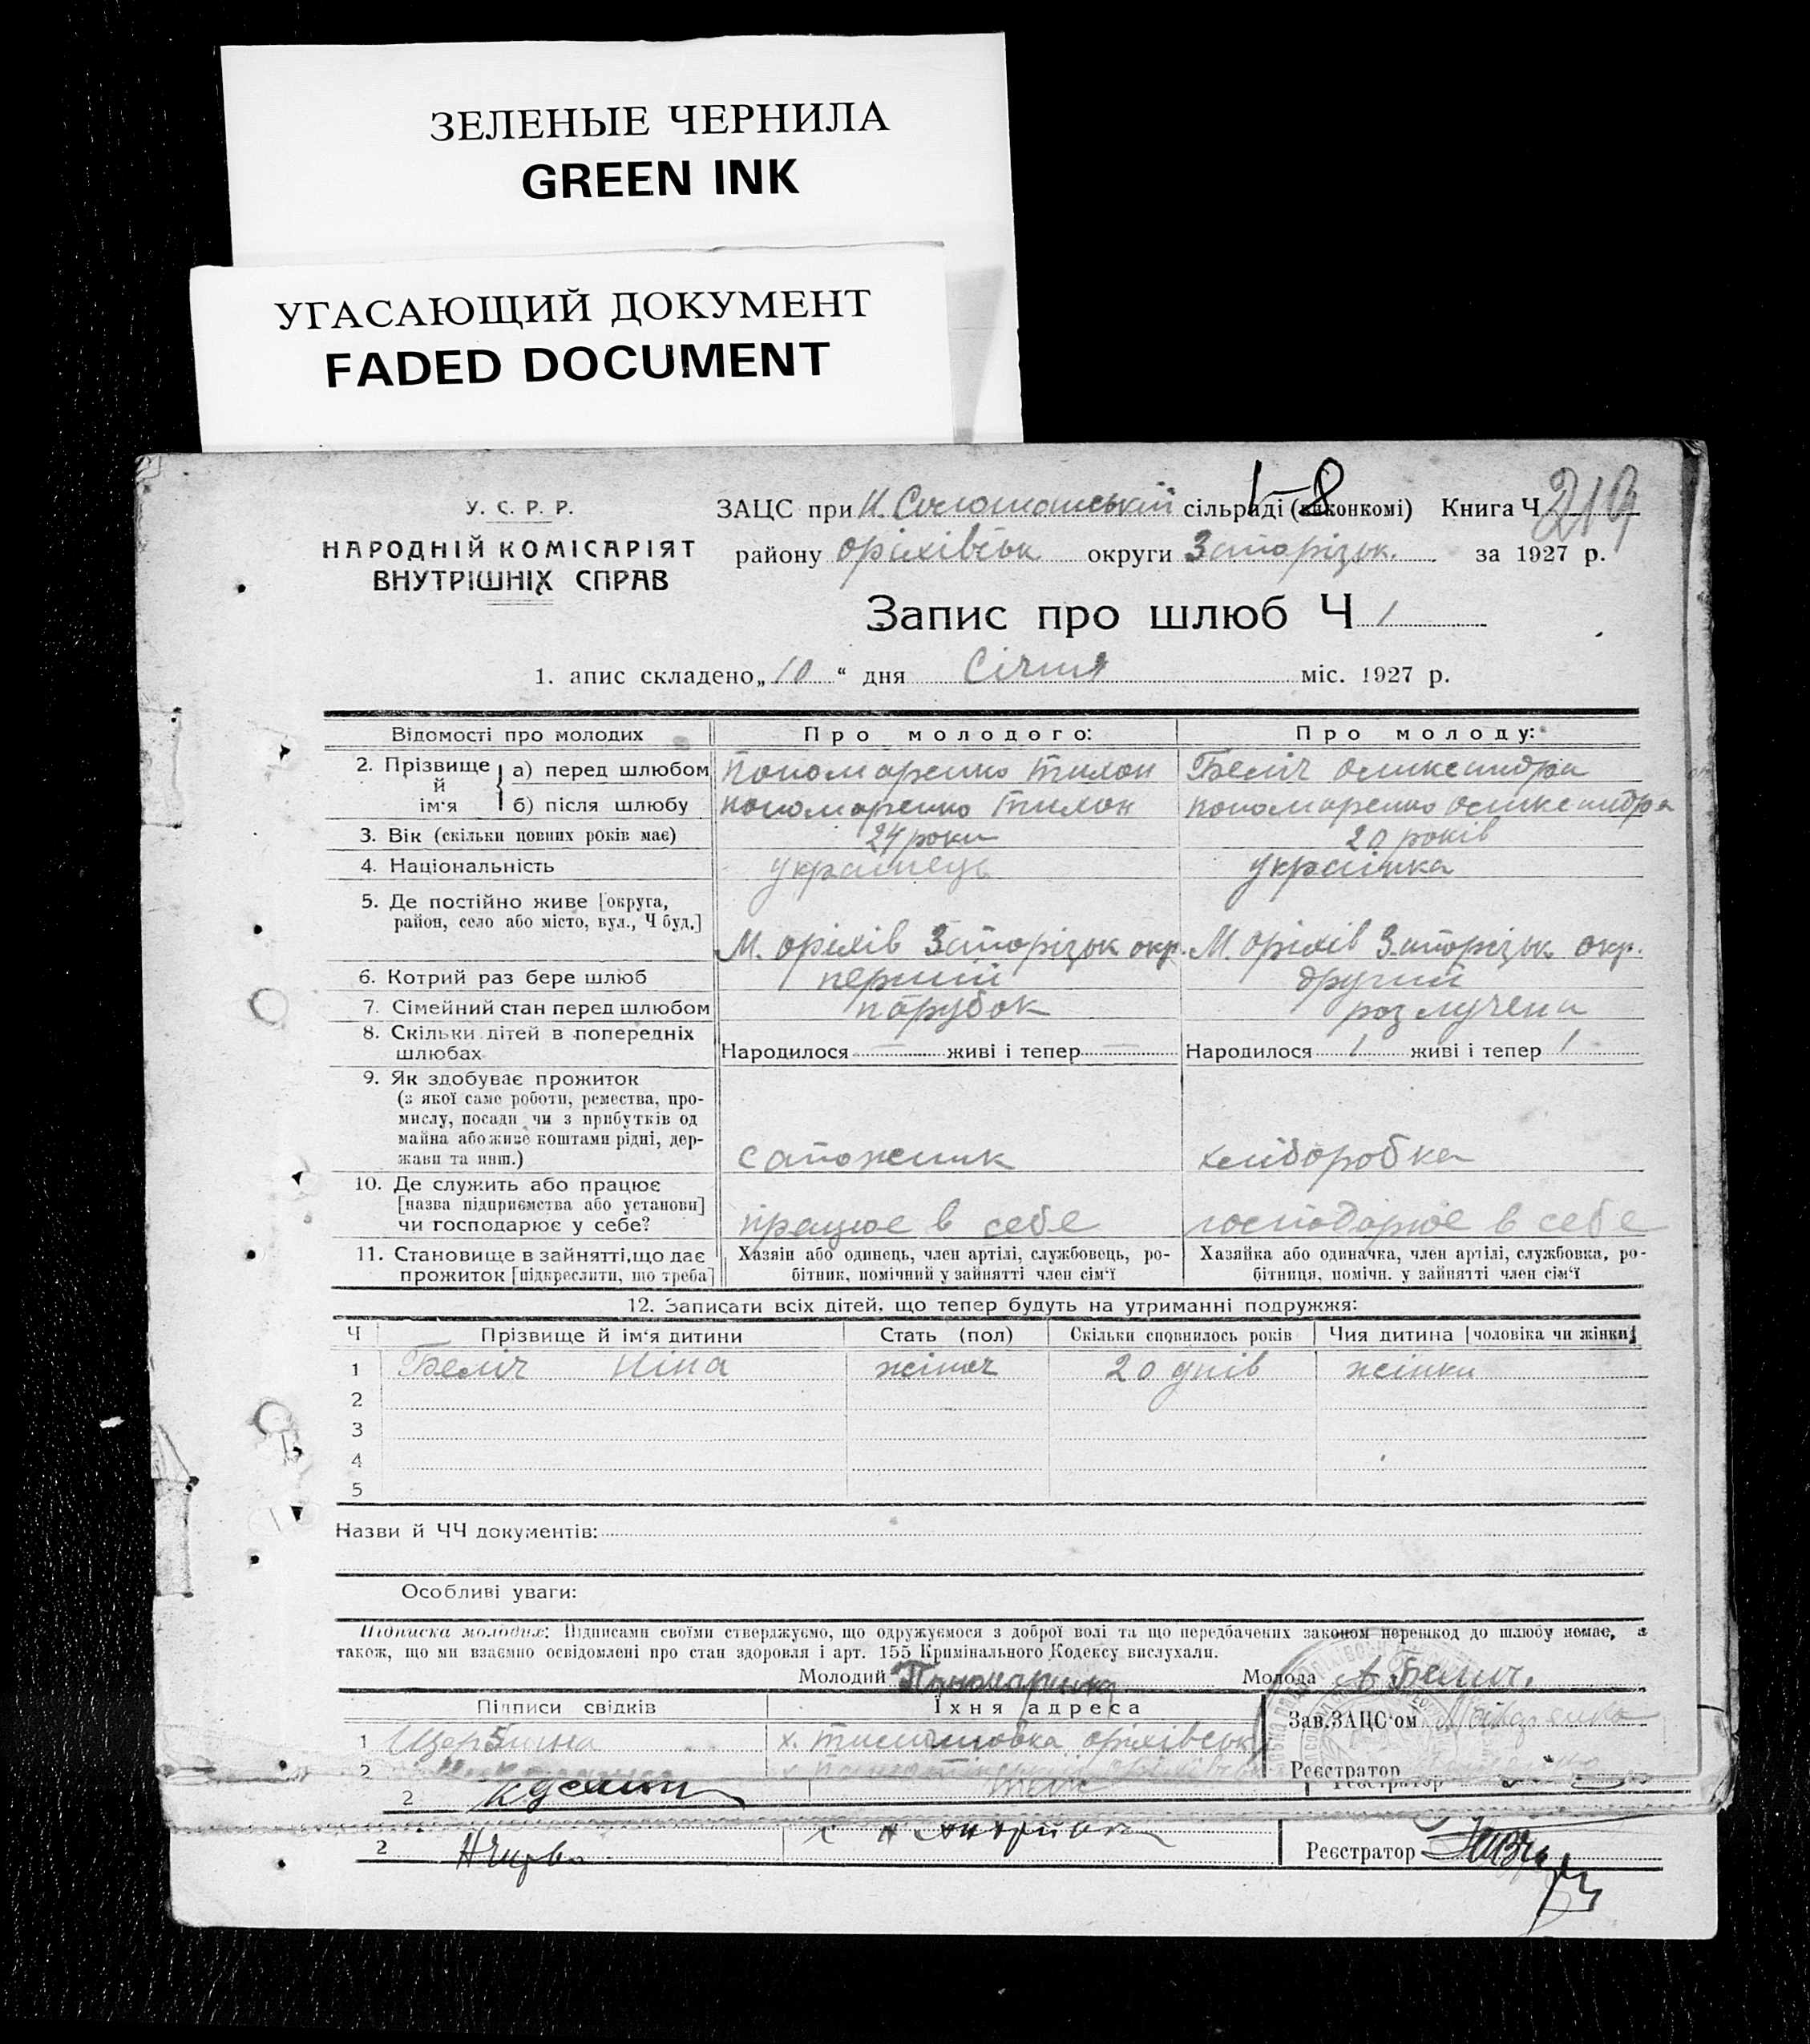 ЗЕЛЕНЫЕ ЧЕРНИЛА
GREEN INK
УГАСАЮЩИЙ ДОКУМЕНТ
FADED DOCUMENT
У. С. Р. Р.
НАРОДНІЙ КОМІСАРІЯТ
ВНУТРІШНІХ СПРАВ
ЗАЦС при сільраді (виконкомі) Книга Ч 219
1-8
району Оріхівськ округи Запорізьк. за 1927 р.
Запис про шлюб Ч 1
1. апис складено „10“ дня Січня міс. 1927 р.
Відомості про молодих Про молодого: Про молоду:
2. Прізвище й ім'я а) перед шлюбом Пономаренко Тихон Беліч Олександра
б) після шлюбу Пономаренко Тихон Пономаренко Олександра
3. Вік (скільки повних років має) 24 роки 20 років
4. Національність українець українка
5. Де постійно живе [округа,
район, село або місто, вул., Ч буд.]
М. Оріхів Запорізьк окр. М. Оріхів Запорізьк окр.
6. Котрий раз бере шлюб перший другий
7. Сімейний стан перед шлюбом парубок розлучена
8. Скільки дітей в попередніх
шлюбах Народилося — живі і тепер — Народилося 1 живі і тепер 1
9. Як здобуває прожиток
(з якої саме роботи, ремества, про-
мислу, посади чи з прибутків од
майна або живе коштами рідні, дер-
жави та инш.) сапожник хліборобка
10. Де служить або працює
[назва підприємства або установи]
чи господарює у себе? працює в себе господарює в себе
11. Становище в зайнятті, що дає
прожиток [підкреслити, що треба]
Хазяїн або одинець, член артілі, службовець, ро-
бітник, помічний у зайнятті член сім'ї
Хазяйка або одиначка, член артілі, службовка, ро-
бітниця, помічн. у зайнятті член сім'ї
12. Записати всіх дітей, що тепер будуть на утриманні подружжя:
Ч Прізвище й ім'я дитини Стать (пол) Скільки сповнилось років Чия дитина [чоловіка чи жінки]
1 Беліч Ніна жіноч 20 днів жінки
2
3
4
5
Назви й ЧЧ документів:
Особливі уваги:
Підписка молодих: Підписами своїми стверджуємо, що одружуємося з доброї волі та що передбачених законом перешкод до шлюбу немає, а
також, що ми взаємно освідомлені про стан здоровля і арт. 155 Кримінального Кодексу вислухали.
Молодий Молода А Белич.
Підписи свідків Їхня адреса
Зав. ЗАЦС'ом
1 Щербина
2
Реєстратор
2
Реєстратор
2
Реєстратор